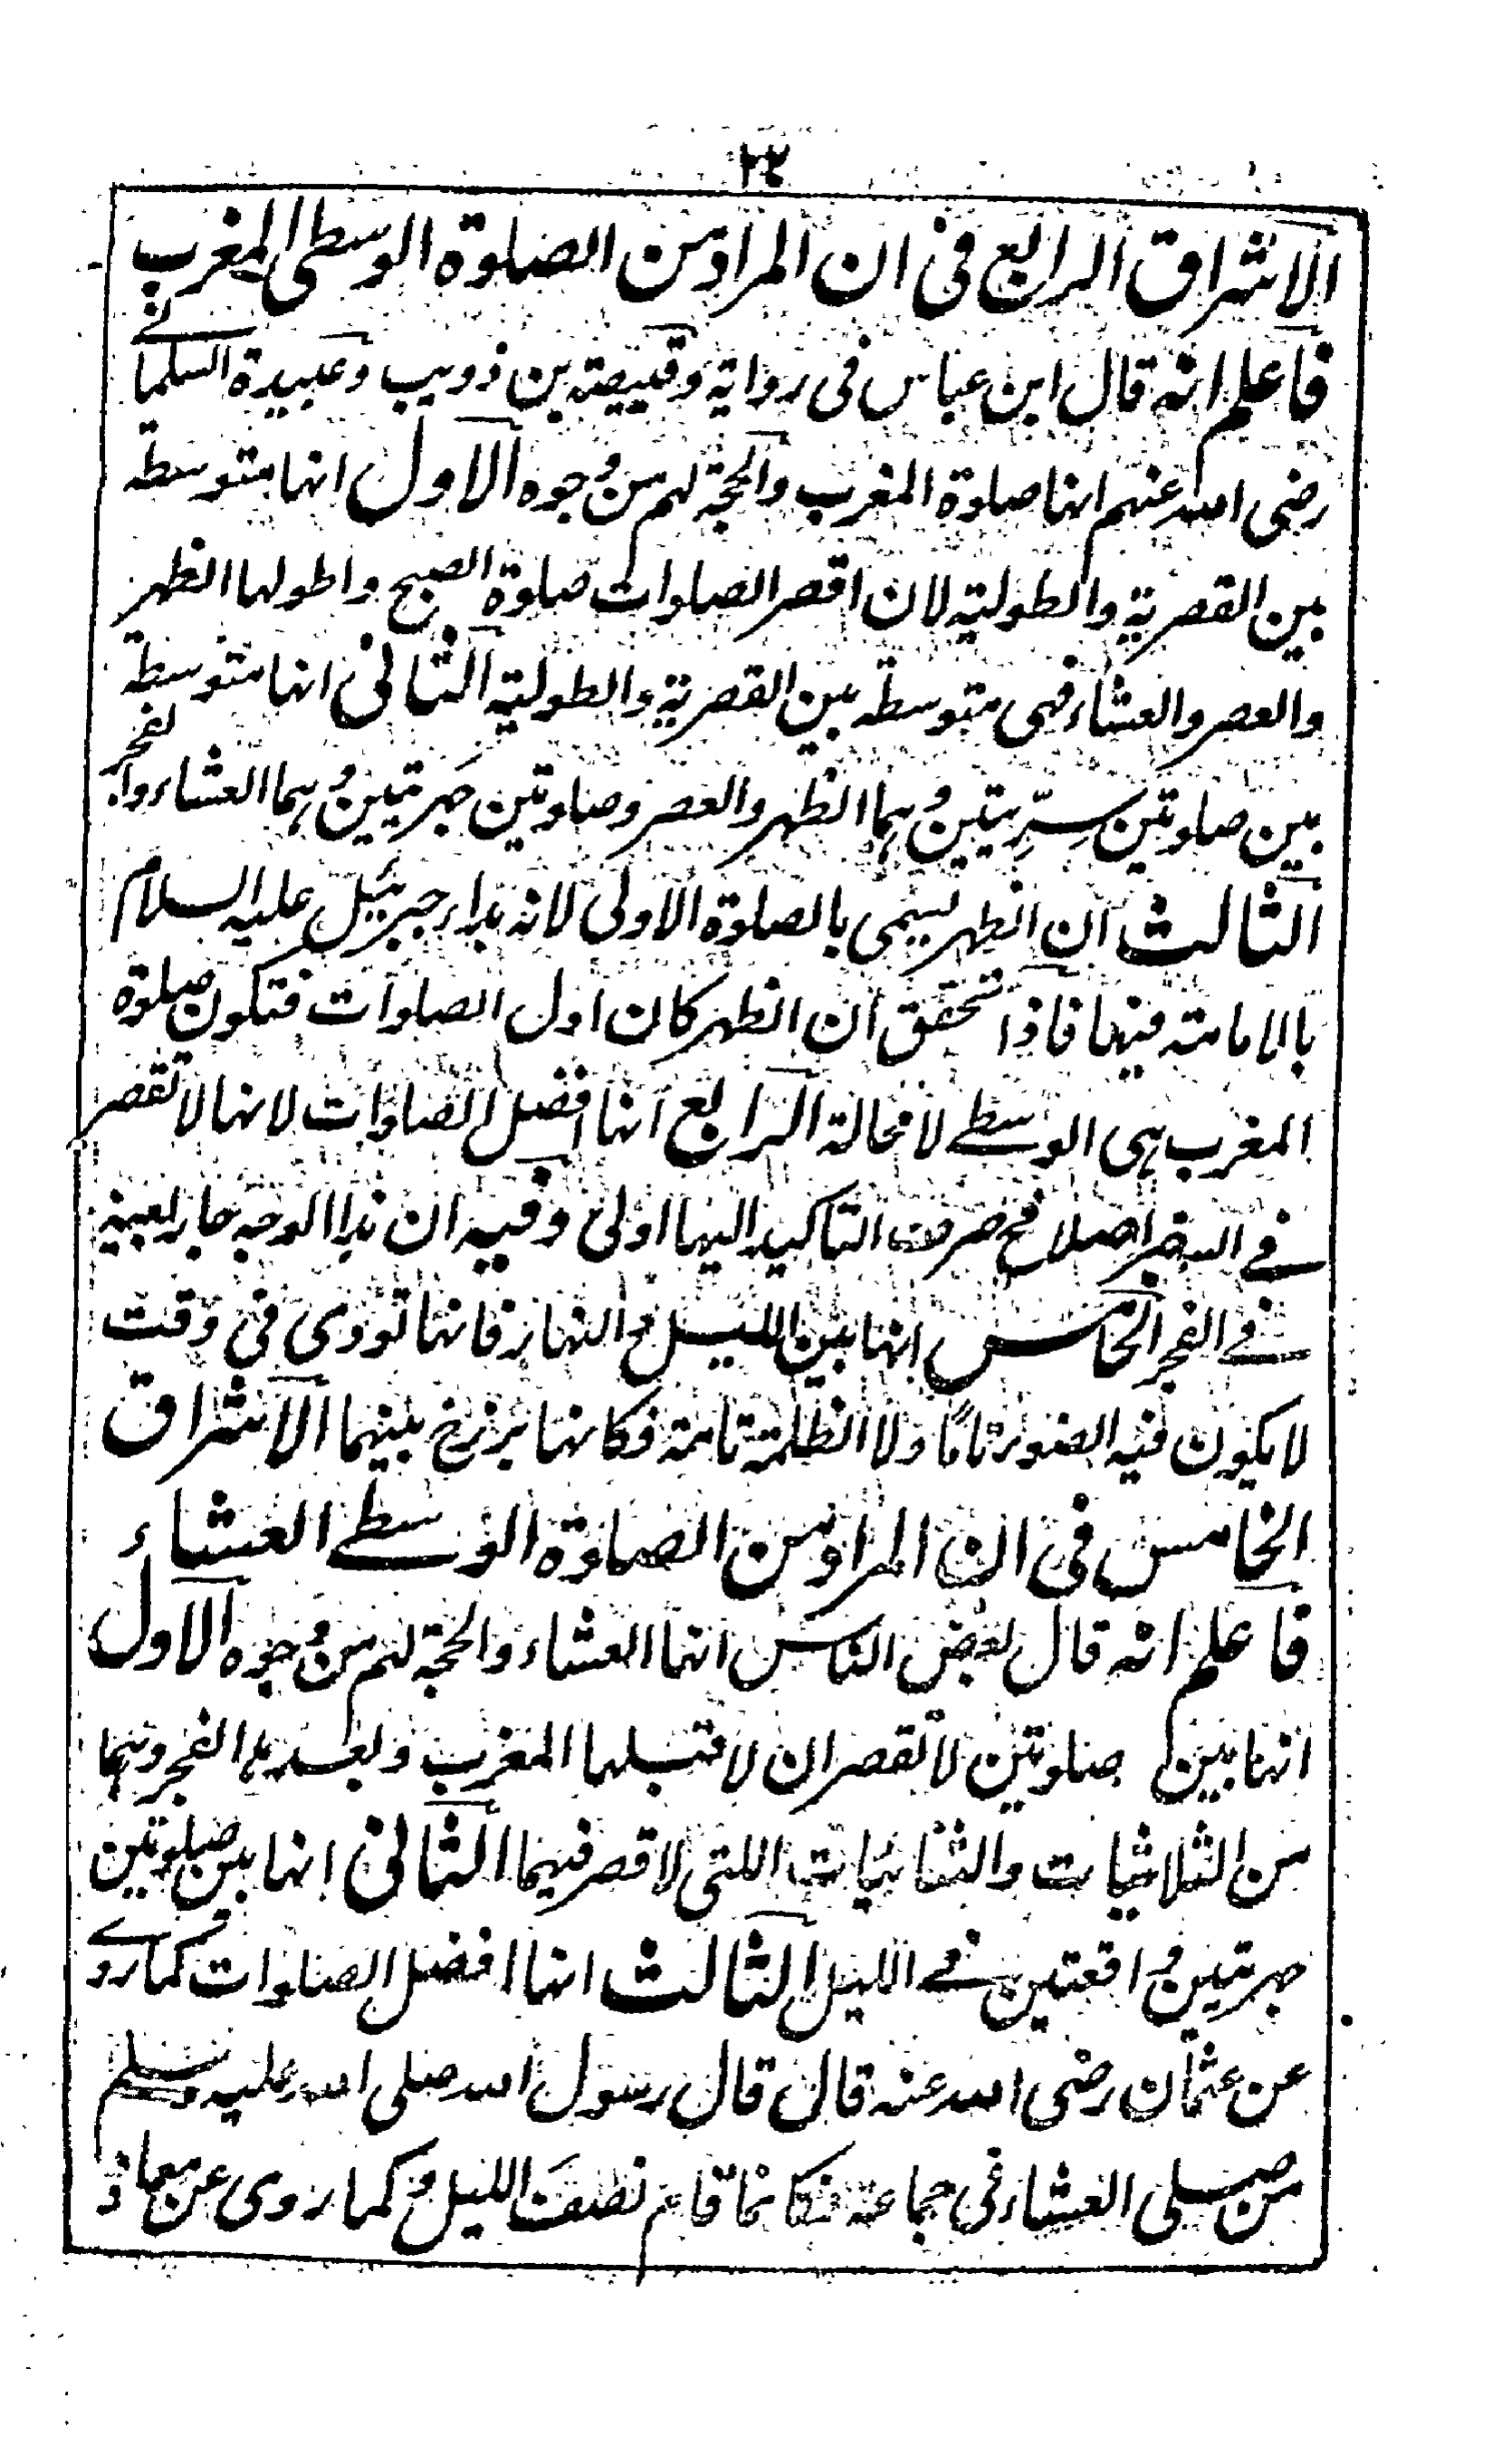 ٢٤
الاشراق الرابع فى ان المراد من الصلوة الوسطى المغرب
فاعلم انه قال ابن عباس فى رواية وقبيصة بن ذويب وعبيدة السلمانے
رضى الله عنهم انها صلوة المغرب والحجة لهم من وجوه الاول انها متوسطة
بين القصرية والطولية لان اقصر الصلوات صلوة الصبح واطولها الظهر
والعصر والعشاء فهى متوسطة بين القصرية والطولية الثانى انها متوسطة
بين صلوتين سِرِّيتين وهما الظهر والعصر وصلوتين جهرتين وهما العشاء والفجر
الثالث ان الظهر يسمى بالصلوة الاولى لانه بدا جبرئيل عليه السلام
بالامامة فيها فاذا تحقق ان الظهر كان اول الصلوات فتكون صلوة
المغرب هى الوسطے لا محالة الرابع انها افضل الصلوات لانها لا تقصر
فے السفر اصلا فح صرف التاكيد اليها اولى وفيه ان هذا الوجه جار بعينه
فے الفجر الخامس انها بين الليل والنهار فانها تودى فى وقت
لا يكون فيه الضوء تامًا ولا الظلمة تامة فكانها برزخ بينهما الاشراق
الخامس فى ان المراد من الصلوة الوسطے العشاء
فاعلم انه قال بعض الناس انها العشاء والحجة لهم من وجوه الاول
انها بين صلوتين لا تقصران لا قبلها المغرب وبعدها الفجر وهما
من الثلاثيات والثنائيات اللتى لا قصر فيهما الثانى انها بين صلوتين
جهرتين واقعتين فے الليل الثالث انها افضل الصلوات كما روے
عن عثمان رضى الله عنه قال قال رسول الله صلى الله عليه وسلم
من صلى العشاء فى جماعة فكانما قام نصفَ الليل وكما روى عن معاذ